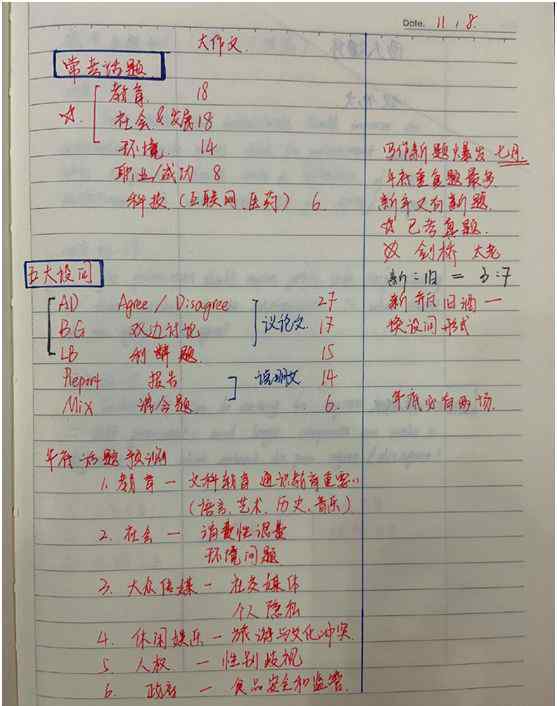 Date. 11.8.
大作文.
常考话题
教育 18
☆ 社会&发展 18
环境. 14
职业/成功 8
科技 (互联网.医药) 6.
写作新题爆发 七月.
年底重复题最多
新年又有新题.
☆ 已考真题.
☆ 剑桥 太老
新:旧 = 3:7
新瓶旧酒一
换设问形式
年底必有两场.
五大设问
AD Agree / Disagree 27
BG 双边讨论 17
议论文.
LB 利弊题. 15
Report 报告 14
说明文
Mix 混合题 6.
年底话题预测
1. 教育 — 文科教育 通识教育重要
(语言.艺术.历史.音乐)
2. 社会 — 消费性
环境问题
3. 大众传媒 — 社交媒体
个人隐私
4. 休闲娱乐 — 旅游与文化冲突.
5. 人权 — 性别歧视
6. 政府 — 食品安全和监管.